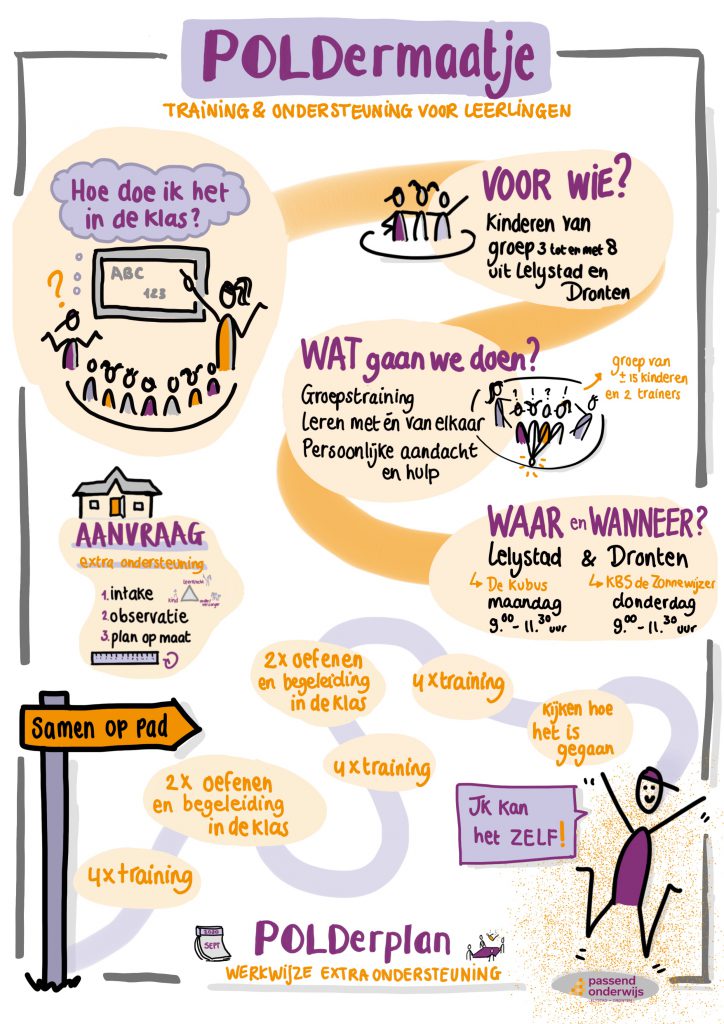 POLDermaatje
TRAINING & ONDERSTEUNING VOOR LEERLINGEN
Hoe doe ik het
in de klas?
ABC
123
?
VOOR WIE?
Kinderen van
groep 3 tot en met 8
uit Lelystad en
Dronten
WAT gaan we doen?
Groepstraining
Leren met én van elkaar
Persoonlijke aandacht
en hulp
! ? ? !
groep van
± 15 kinderen
en 2 trainers
WAAR en WANNEER?
Lelystad & Dronten
De Kubus
maandag
9.00-11.30 uur
KBS de Zonnewijzer
donderdag
9.00-11.30 uur
AANVRAAG
extra ondersteuning
1. intake
2. observatie
3. plan op maat
leerkracht
kind
ouder/
verzorger
Samen op pad
4x training
2x oefenen
en begeleiding
in de klas
4x training
2x oefenen
en begeleiding
in de klas
4x training
kijken hoe
het is
gegaan
Ik kan
het ZELF!
2020
SEPT
POLDerplan
WERKWIJZE EXTRA ONDERSTEUNING
passend
onderwijs
LELYSTAD - DRONTEN